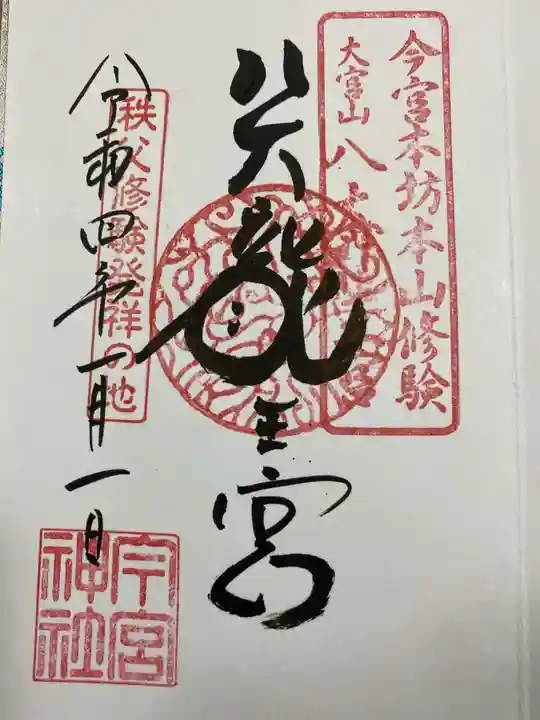 今宮本坊本山修験
大宮山八
八大龍王宮
秩父修験発祥の地
令和四年一月一日
今宮
神社